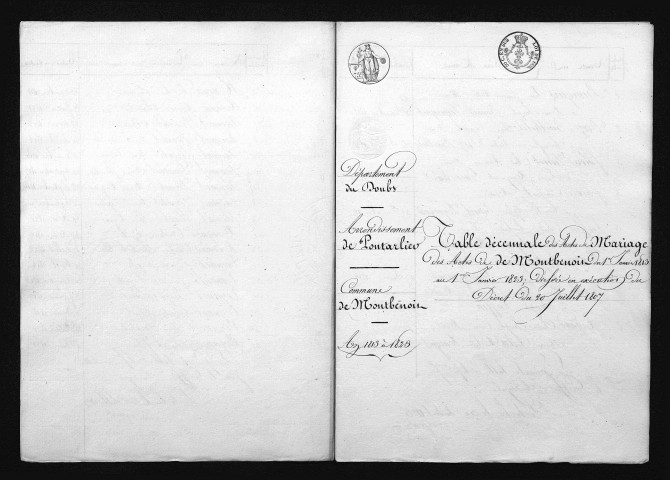 Département
du Doubs
Arrondissement
de Pontarlier
Commune
de Montbenoit
An 1813 à 1823
Table décennale des Actes de Mariage
des Actes de de Montbenoit Du 1er Janvier 1813
au 1er Janvier 1823, dressée en exécution du
Décret du 20 Juillet 1807